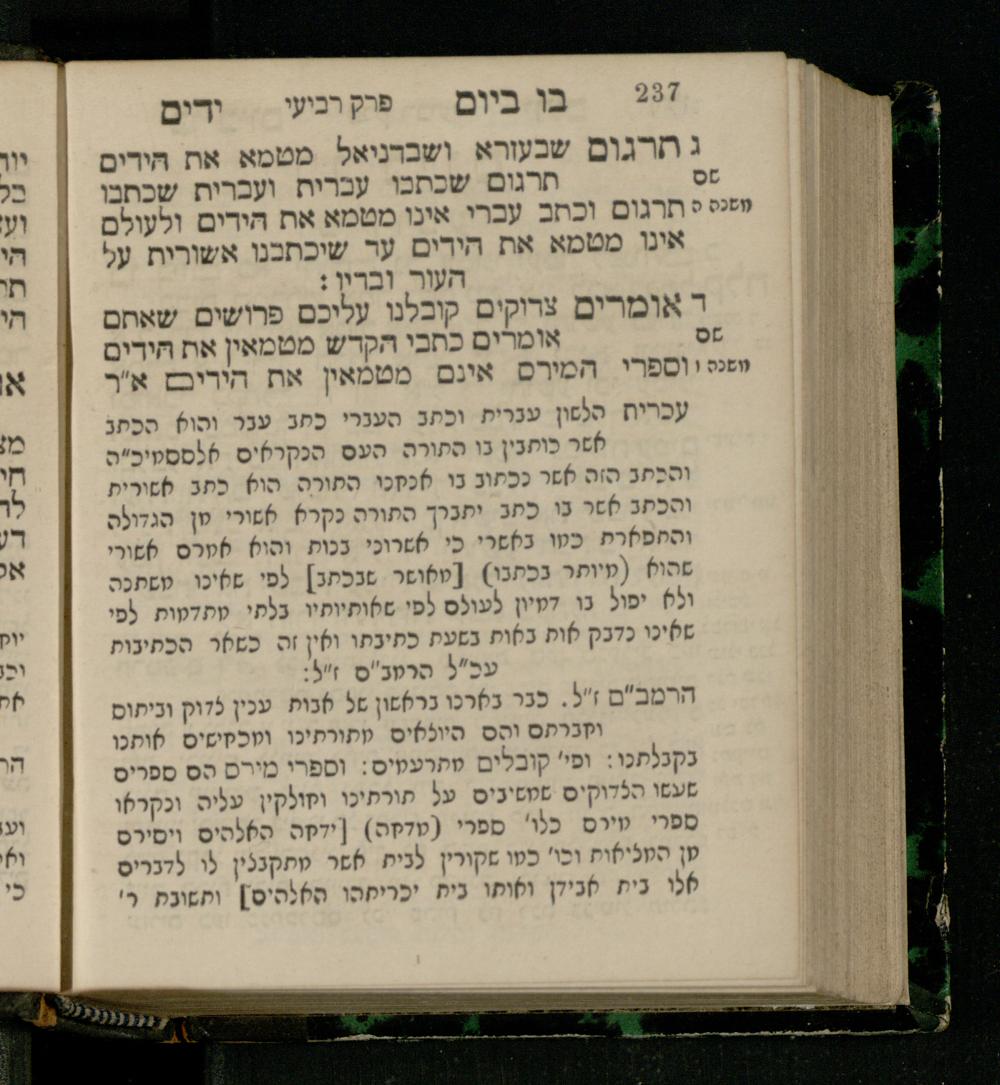 237 בו ביום פרק רביעי ידים
ג תרגום שבעזרא ושבדניאל מטמא את הידים
שם תרגום שכתבו עברית ועברית שכתבו
משנה ה תרגום וכתב עברי אינו מטמא את הידים ולעולם
אינו מטמא את הידים עד שיכתבנו אשורית על
העור ובדיו :
ד אומרים צדוקים קובלנו עליכם פרושים שאתם
שם אומרים כתבי הקדש מטמאין את הידים
משנה ו וספרי המירם אינם מטמאין את הידים א״ר
עברית הלשון עברית וכתב העברי כתב עבר והוא הכתב
אשר כותבין בו התורה העם הנקראים אלססמיכ״ה
והכתב הזה אשר נכתוב בו אנחנו התורה הוא כתב אשורית
והכתב אשר בו כתב יתברך התורה נקרא אשורי מן הגדולה
והתפארת כמו באשרי כי אשרוני בנות והוא אמרם אשורי
שהוא (מיותר בכתבו) [מאושר שבכתב] לפי שאינו משתנה
ולא יפול בו דמיון לעולם לפי שאותיותיו בלתי מתדמות לפי
שאינו נדבק אות באות בשעת כתיבתו ואין זה כשאר הכתיבות
עכ״ל הרמב״ם ז״ל:
הרמב״ם ז״ל. כבר בארנו בראשון של אבות ענין צדוק וביתום
וחברתם והם היוצאים מתורתינו ומכחישים אותנו
בקבלתנו: ופי׳ קובלים מתרעמים: וספרי מירם הם ספרים
שעשו הצדוקים שמשיבים על תורתינו וחולקין עליה ונקראו
ספרי מירם כלו׳ ספרי (מדחה) [ידחה האלהים ויסירם
מן המציאות וכו׳ כמו שקורין לבית אשר מתקבצין לו לדברים
אלו בית אבידן ואותו בית יכריתהו האלהים] ותשובת ר׳